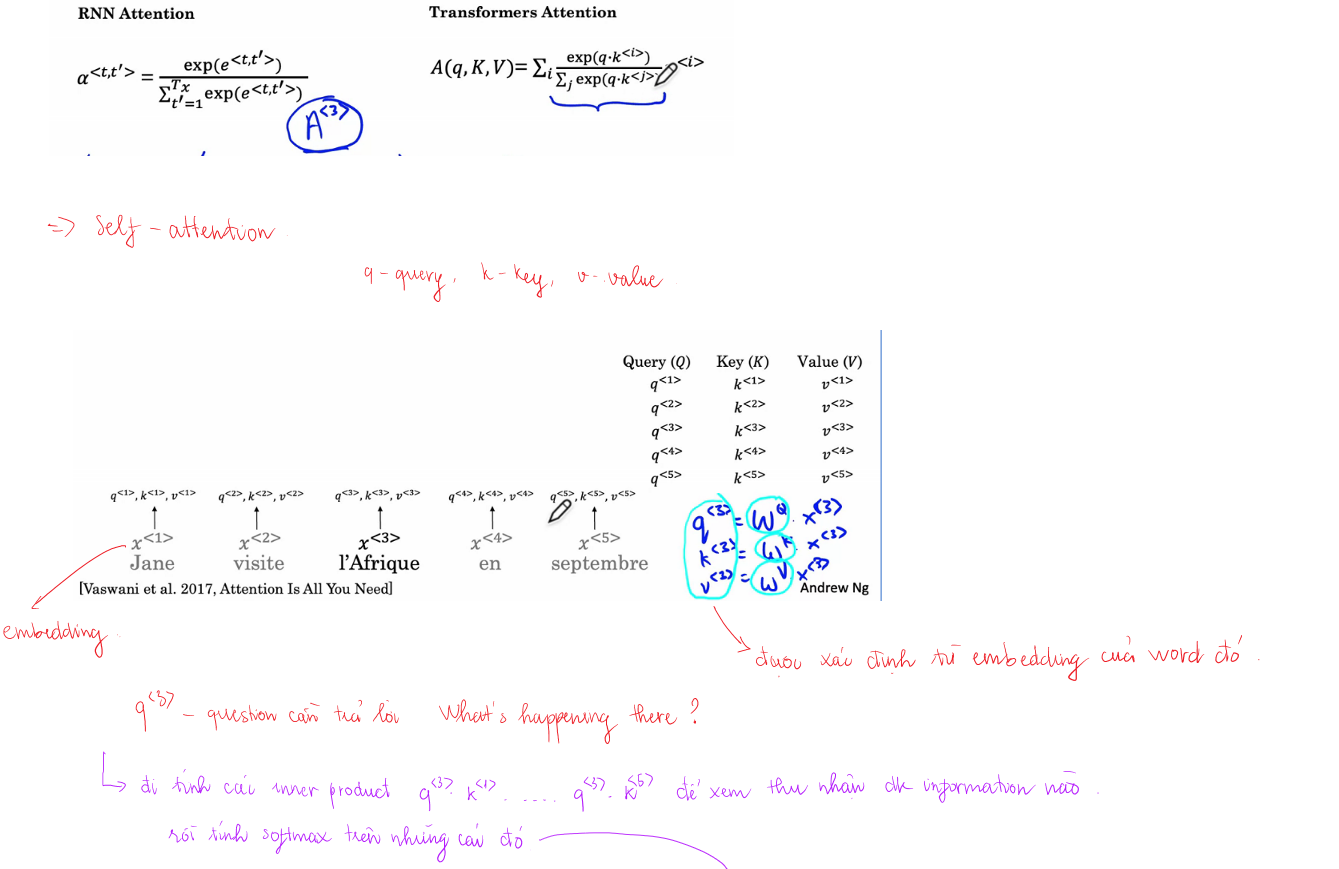 RNN Attention
Transformers Attention
α<t,t′> = exp(e<t,t′>) / ∑Tx t′=1 exp(e<t,t′>)
A(q, K, V) = ∑i exp(q·k<i>) / ∑j exp(q·k<j>) <i>
A<3>
=> Self - attention
q - query, k - key, v - value
Query (Q) Key (K) Value (V)
q<1> k<1> v<1>
q<2> k<2> v<2>
q<3> k<3> v<3>
q<4> k<4> v<4>
q<5> k<5> v<5>
q<1>, k<1>, v<1> q<2>, k<2>, v<2> q<3>, k<3>, v<3> q<4>, k<4>, v<4> q<5>, k<5>, v<5>
x<1> x<2> x<3> x<4> x<5>
Jane visite l'Afrique en septembre
q<3> = WQ · x<3>
k<3> = WK · x<3>
v<3> = WV x<3>
[Vaswani et al. 2017, Attention Is All You Need]
Andrew Ng
embedding
được xác định từ embedding của word đó.
q<3> - question cần trả lời What's happening there?
đi tính các inner product q<3>. k<1> ..... q<3>. k<5> để xem thu nhận đk information nào.
rồi tính softmax trên những cái đó